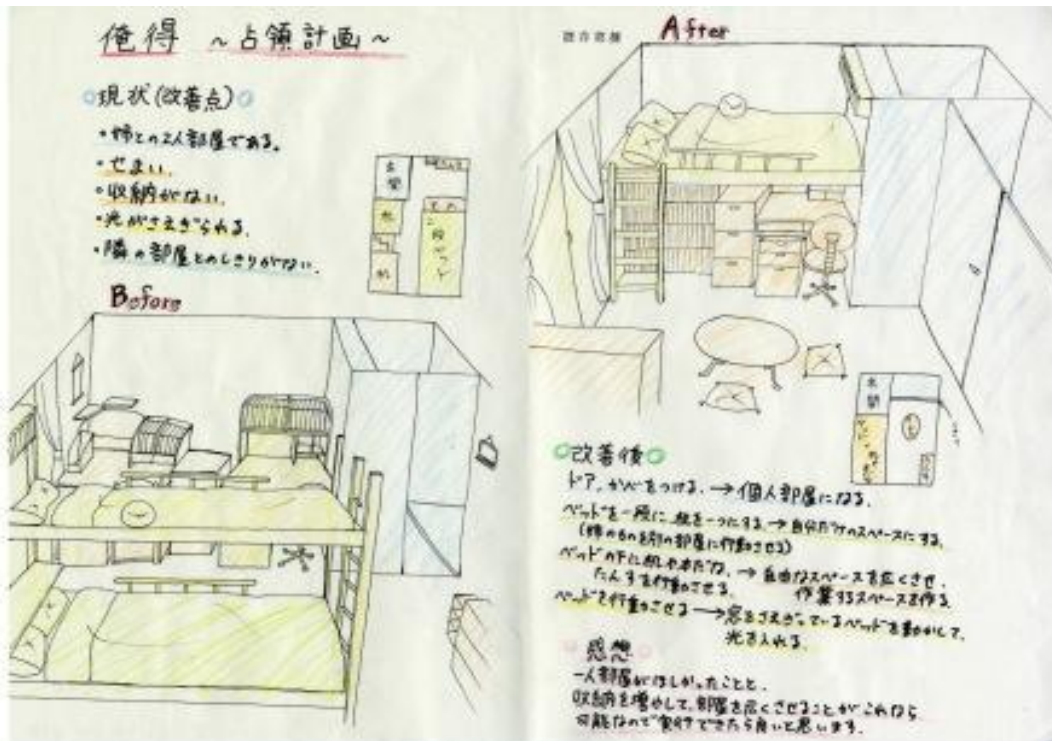 俺得 ～占領計画～
現状(改善点)
・姉との2人部屋である。
・せまい。
・収納がない。
・光がさえぎられる。
・隣の部屋とのしきりがない。
玄関
机
二段ベッド
机
Before
After
玄関
改善後
ドア、かべをつける。→個人部屋になる。
ベッドを一段に、机を一つにする。→自分だけのスペースにする。
(姉のもの別の部屋に行動させる)
ベッドの下に机や本だな、→自由なスペースを広くさせ、
たんすを行動させる。作業するスペースを作る。
ベッドを行動させる→窓をさえぎっているベッドを動かして、
光を入れる。
感想
一人部屋がほしかったことと、
収納を増やして、部屋を広くさせることがこれなら
可能なので実行できたら良いと思います。